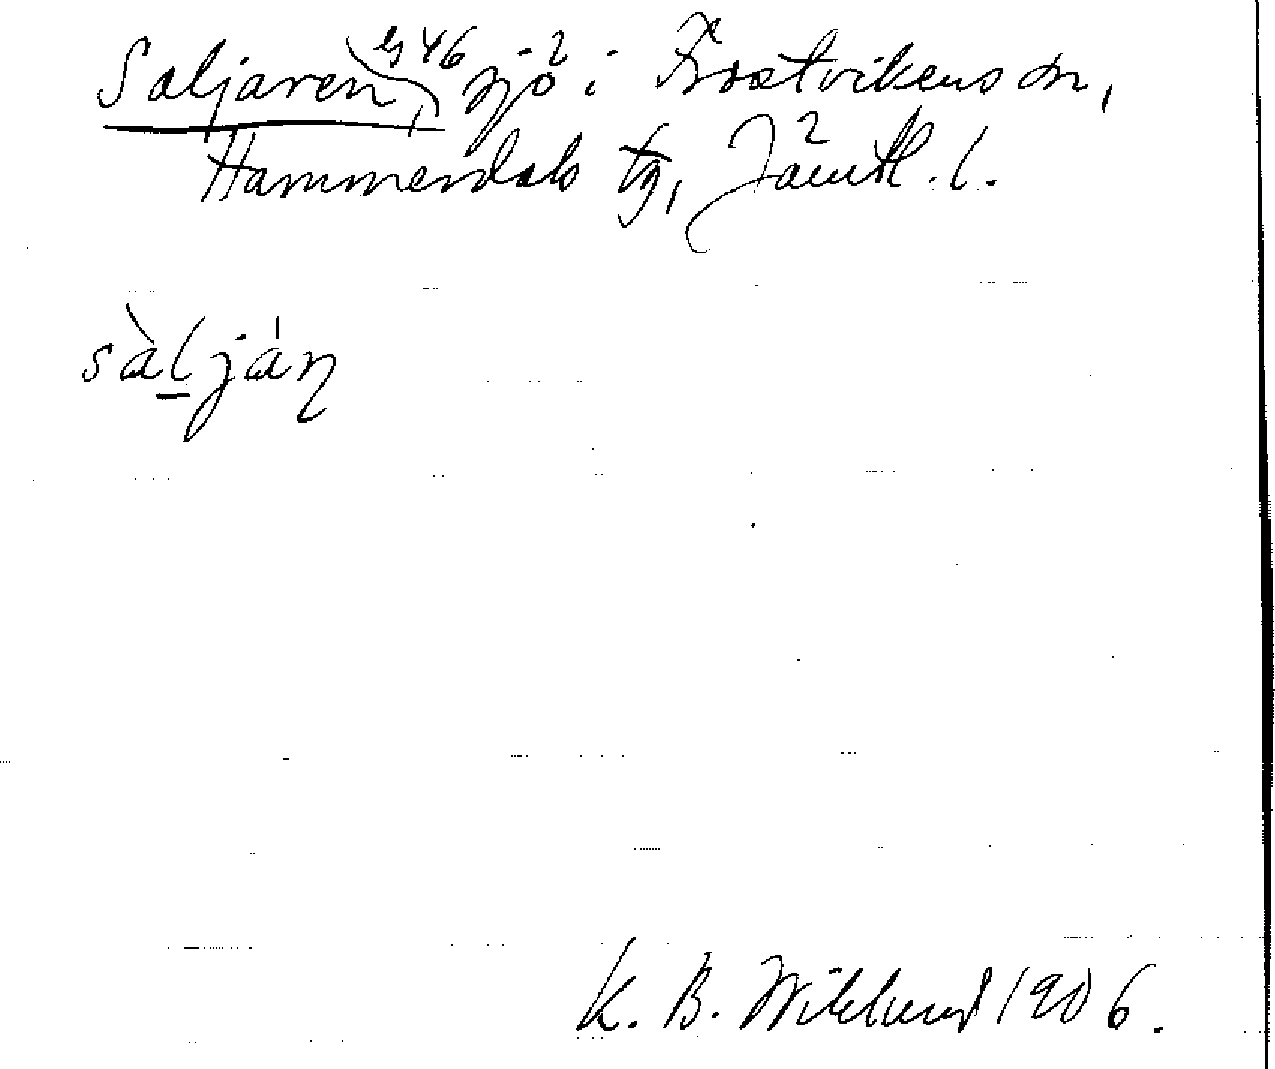 Saljaren, sjö i Frostvikens sn,
Hammerdals tg, Jämtl. l.
sàljáη
K. B. Wiklund 1906.